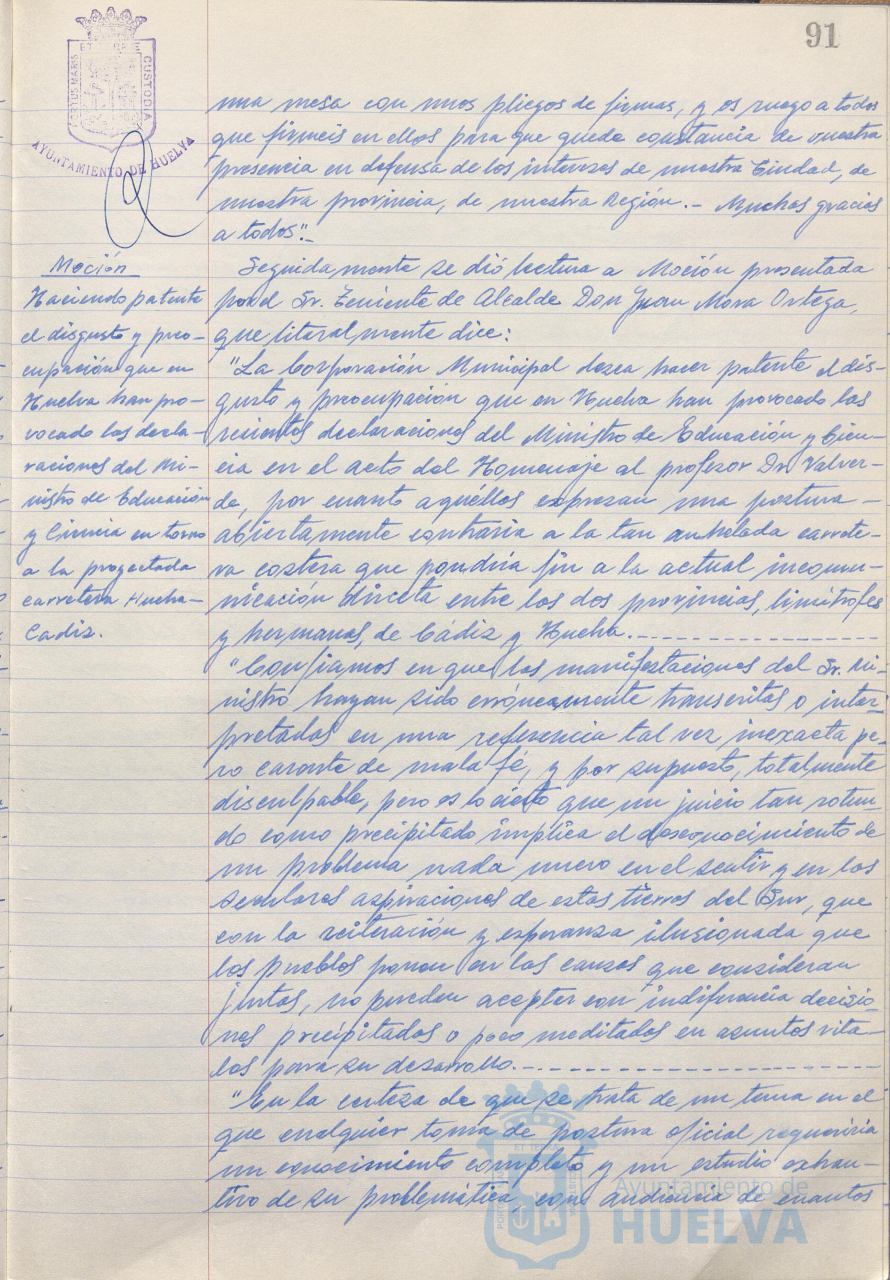 91
PORTUS MARIS ET TERRE CUSTODIA
AYUNTAMIENTO DE HUELVA
una mesa con unos pliegos de firmas, y os ruego a todos
que firmeis en ellos para que quede constancia de vuestra
presencia en defensa de los intereses de nuestra Ciudad, de
nuestra provincia, de nuestra Región.- Muchas gracias
a todos".-
Moción
Haciendo patente
el disgusto y preo-
cupación que en
Huelva han pro-
vocado las decla-
raciones del Mi-
nistro de Educación
y Ciencia en torno
a la proyectada
carretera Huelva-
Cadiz.
Seguidamente se dió lectura a Moción presentada
por el Sr. Teniente de Alcalde Don Juan Mora Ortega,
que literalmente dice:
"La Corporación Municipal desea hacer patente el dis-
gusto y preocupación que en Huelva han provocado las
recientes declaraciones del Ministro de Educación y Cien-
cia en el acto del Homenaje al profesor Dr. Valver-
de, por cuanto aquéllos expresan una postura-
abiertamente contraria a la tan anhelada carrete-
ra costera que pondría fin a la actual incomu-
nicación directa entre las dos provincias, limítrofes
y hermanas, de Cádiz y Huelva.----------------
"Confiamos en que las manifestaciones del Sr. Mi-
nistro hayan sido erróneamente transcritas o inter-
pretadas en una referencia tal vez inexacta pe-
ro carente de mala fé, y por supuesto, totalmente
disculpable, pero es lo cierto que un juicio tan rotun-
do como precipitado implica el desconocimiento de
un problema nada nuevo en el sentir y en las
seculares aspiraciones de estas tierras del Sur, que
con la reiteración y esperanza ilusionada que
los pueblos ponen en las causas que consideran
justas, no pueden aceptar con indiferencia decisio-
nes precipitadas o poco meditadas en asuntos vita-
les para su desarrollo.----------------
"En la certeza de que se trata de un tema en el
que cualquier toma de postura oficial requeriría
un conocimiento completo y un estudio exhaus-
tivo de su problemática, con audiencia de cuantos
Ayuntamiento de
HUELVA